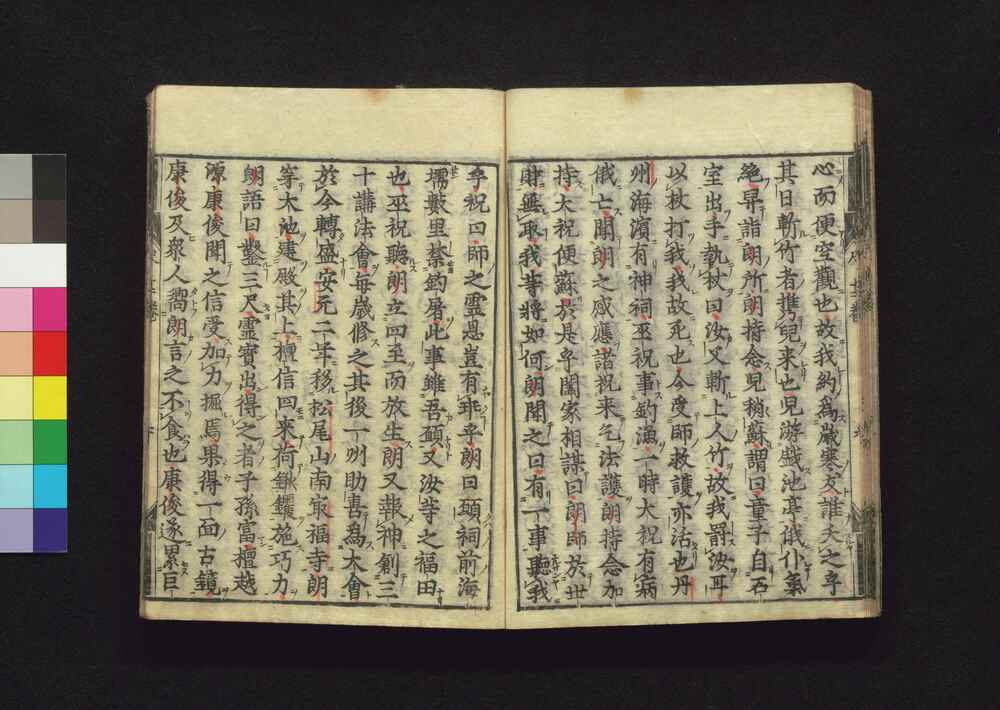 心而便空觀也故我約爲歲寒友誰夭之乎
其日斬竹者携兒来也兒游戲池亭俄仆氣
絶早詣朗所朗持念兒稍蘇謂曰童子自石
室出手執杖曰汝父斬上人竹故我罸汝耳
以杖打我我故死也今受師救護亦活也丹
州海濱有神祠巫祝事釣漁一時大祝有病
俄亡聞朗之感應諸祝来乞法護朗持念加
持大祝便蘇於是乎闔家相謀曰朗師於世
財無取我等將如何朗聞之曰有一事聽我
乎祝曰師之靈恩豈有非乎朗曰頭祠前海
壖數里禁釣屠此事雖吾願又汝等之福田
也巫祝聽朗立四至而放生朗又報神創三
十講法會每歲修之其後一州助善爲大會
於今轉盛安元二年移松尾山南最福寺朗
穿大池建殿其上檀信四来荷鍬钁施巧力
朗語曰鑿三尺靈寶出得之者子孫富檀越
源康俊聞之信受加力掘焉果得一面古鏡
康俊及衆人嚮朗言之不食也康俊遂累巨